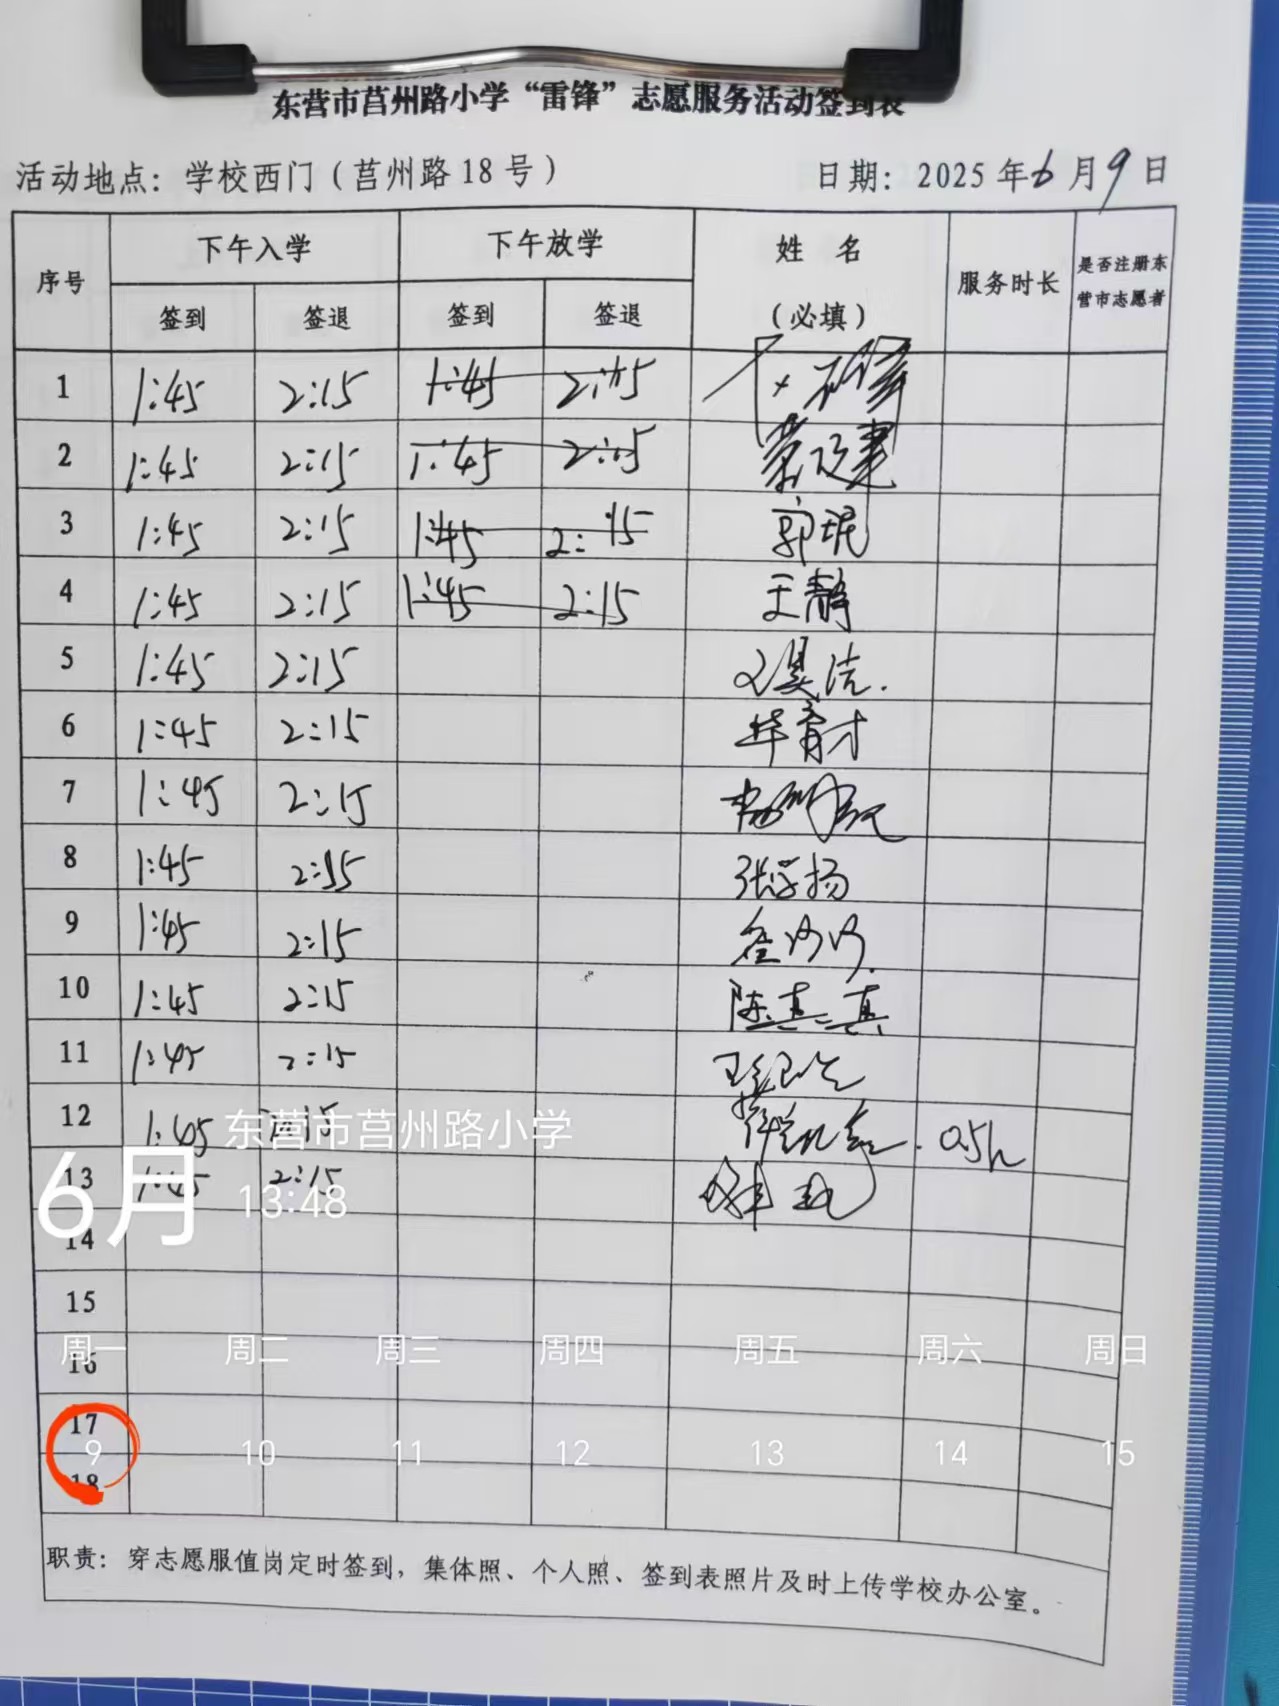 东营市莒州路小学“雷锋”志愿服务活动签到表
活动地点：学校西门（莒州路18号） 日期：2025年6月9日
序号 下午入学 下午放学 姓名（必填） 服务时长 是否注册东营市志愿者
签到 签退 签到 签退
1 1:45 2:15 1:45 2:15
2 1:45 2:15 1:45 2:15
3 1:45 2:15 1:45 2:15 郭琨
4 1:45 2:15 1:45 2:15 王静
5 1:45 2:15
6 1:45 2:15 华育才
7 1:45 2:15
8 1:45 2:15 张学扬
9 1:45 2:15
10 1:45 2:15 陈真真
11 1:45 2:15
12 1:45 2:15 0.5h
13 1:45 2:15
14
15
16
17
18
东营市莒州路小学
6月 13:48
周一 周二 周三 周四 周五 周六 周日
9 10 11 12 13 14 15
职责：穿志愿服值岗定时签到，集体照、个人照、签到表照片及时上传学校办公室。